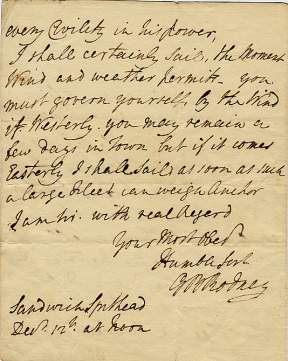 every Civility in his power,
I shall certainly Sail, the Moment
Wind and weather permits - you
must govern yourself by the Wind
if Westerly. you may remain a
few Days in Town but if it comes
Easterly I shall Sail as soon as such
a large Fleet can weigh Anchor
I am Sir. with real Regard
Your Most Obed
Humble Servt
G B Rodney
Sandwich Spithead
Decr. 12th. at Noon